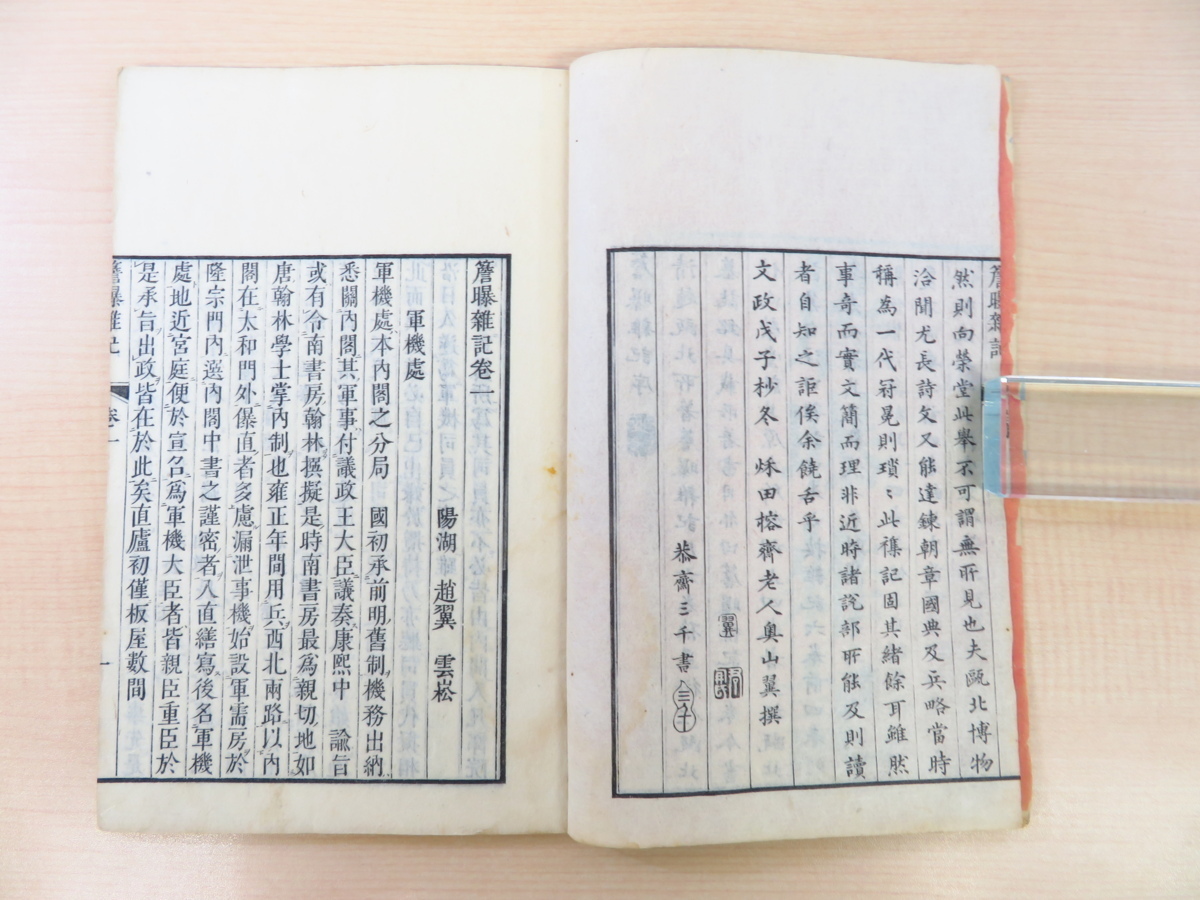 然則向榮堂此舉不可謂無所見也夫甌北博物
洽聞尤長詩文又能達鍊朝章國典及兵略當時
稱為一代冠冕則瑣〻此襍記固其緒餘耳雖然
事奇而實文簡而理非近時諸說部所能及則讀
者自知之詎俟余饒舌乎
文政戊子杪冬 秌田榕齊老人奥山翼撰
恭齊三千書
簷曝雜記
簷曝雜記卷一
陽湖 趙翼 雲崧
軍機處
軍機處本內閣之分局 國初承前明舊制機務出納
悉關內閣其軍事付議政王大臣議奏康熙中 諭旨
或有令南書房翰林撰擬是時南書房最爲親切地如
唐翰林學士掌內制也雍正年間用兵西北兩路以內
閣在太和門外儤直者多慮漏泄事機始設軍需房於
隆宗門內選內閣中書之謹密者入直繕寫後名軍機
處地近宮庭便於宣召爲軍機大臣者皆親臣重臣於
是承旨出政皆在於此矣直廬初僅板屋數間
簷曝雜記 卷一 一